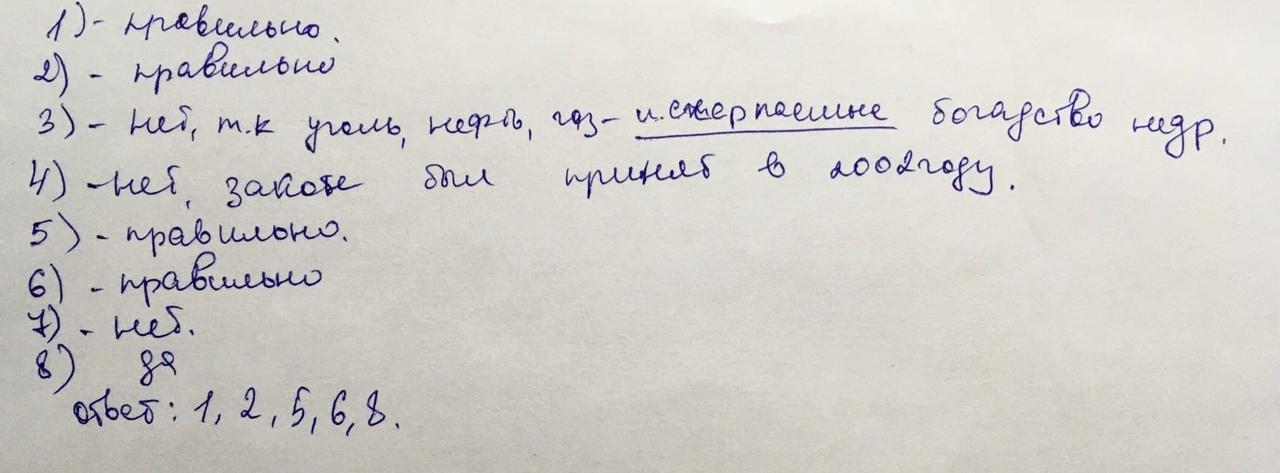 1) - правильно.
2) - правильно
3) - нет, т.к уголь, нефть, газ - исжерпаемые богадство недр.
4) - нет, закон был принят в 2002 году.
5) - правильно.
6) - правильно
7) - нет.
8) да
ответ: 1, 2, 5, 6, 8.